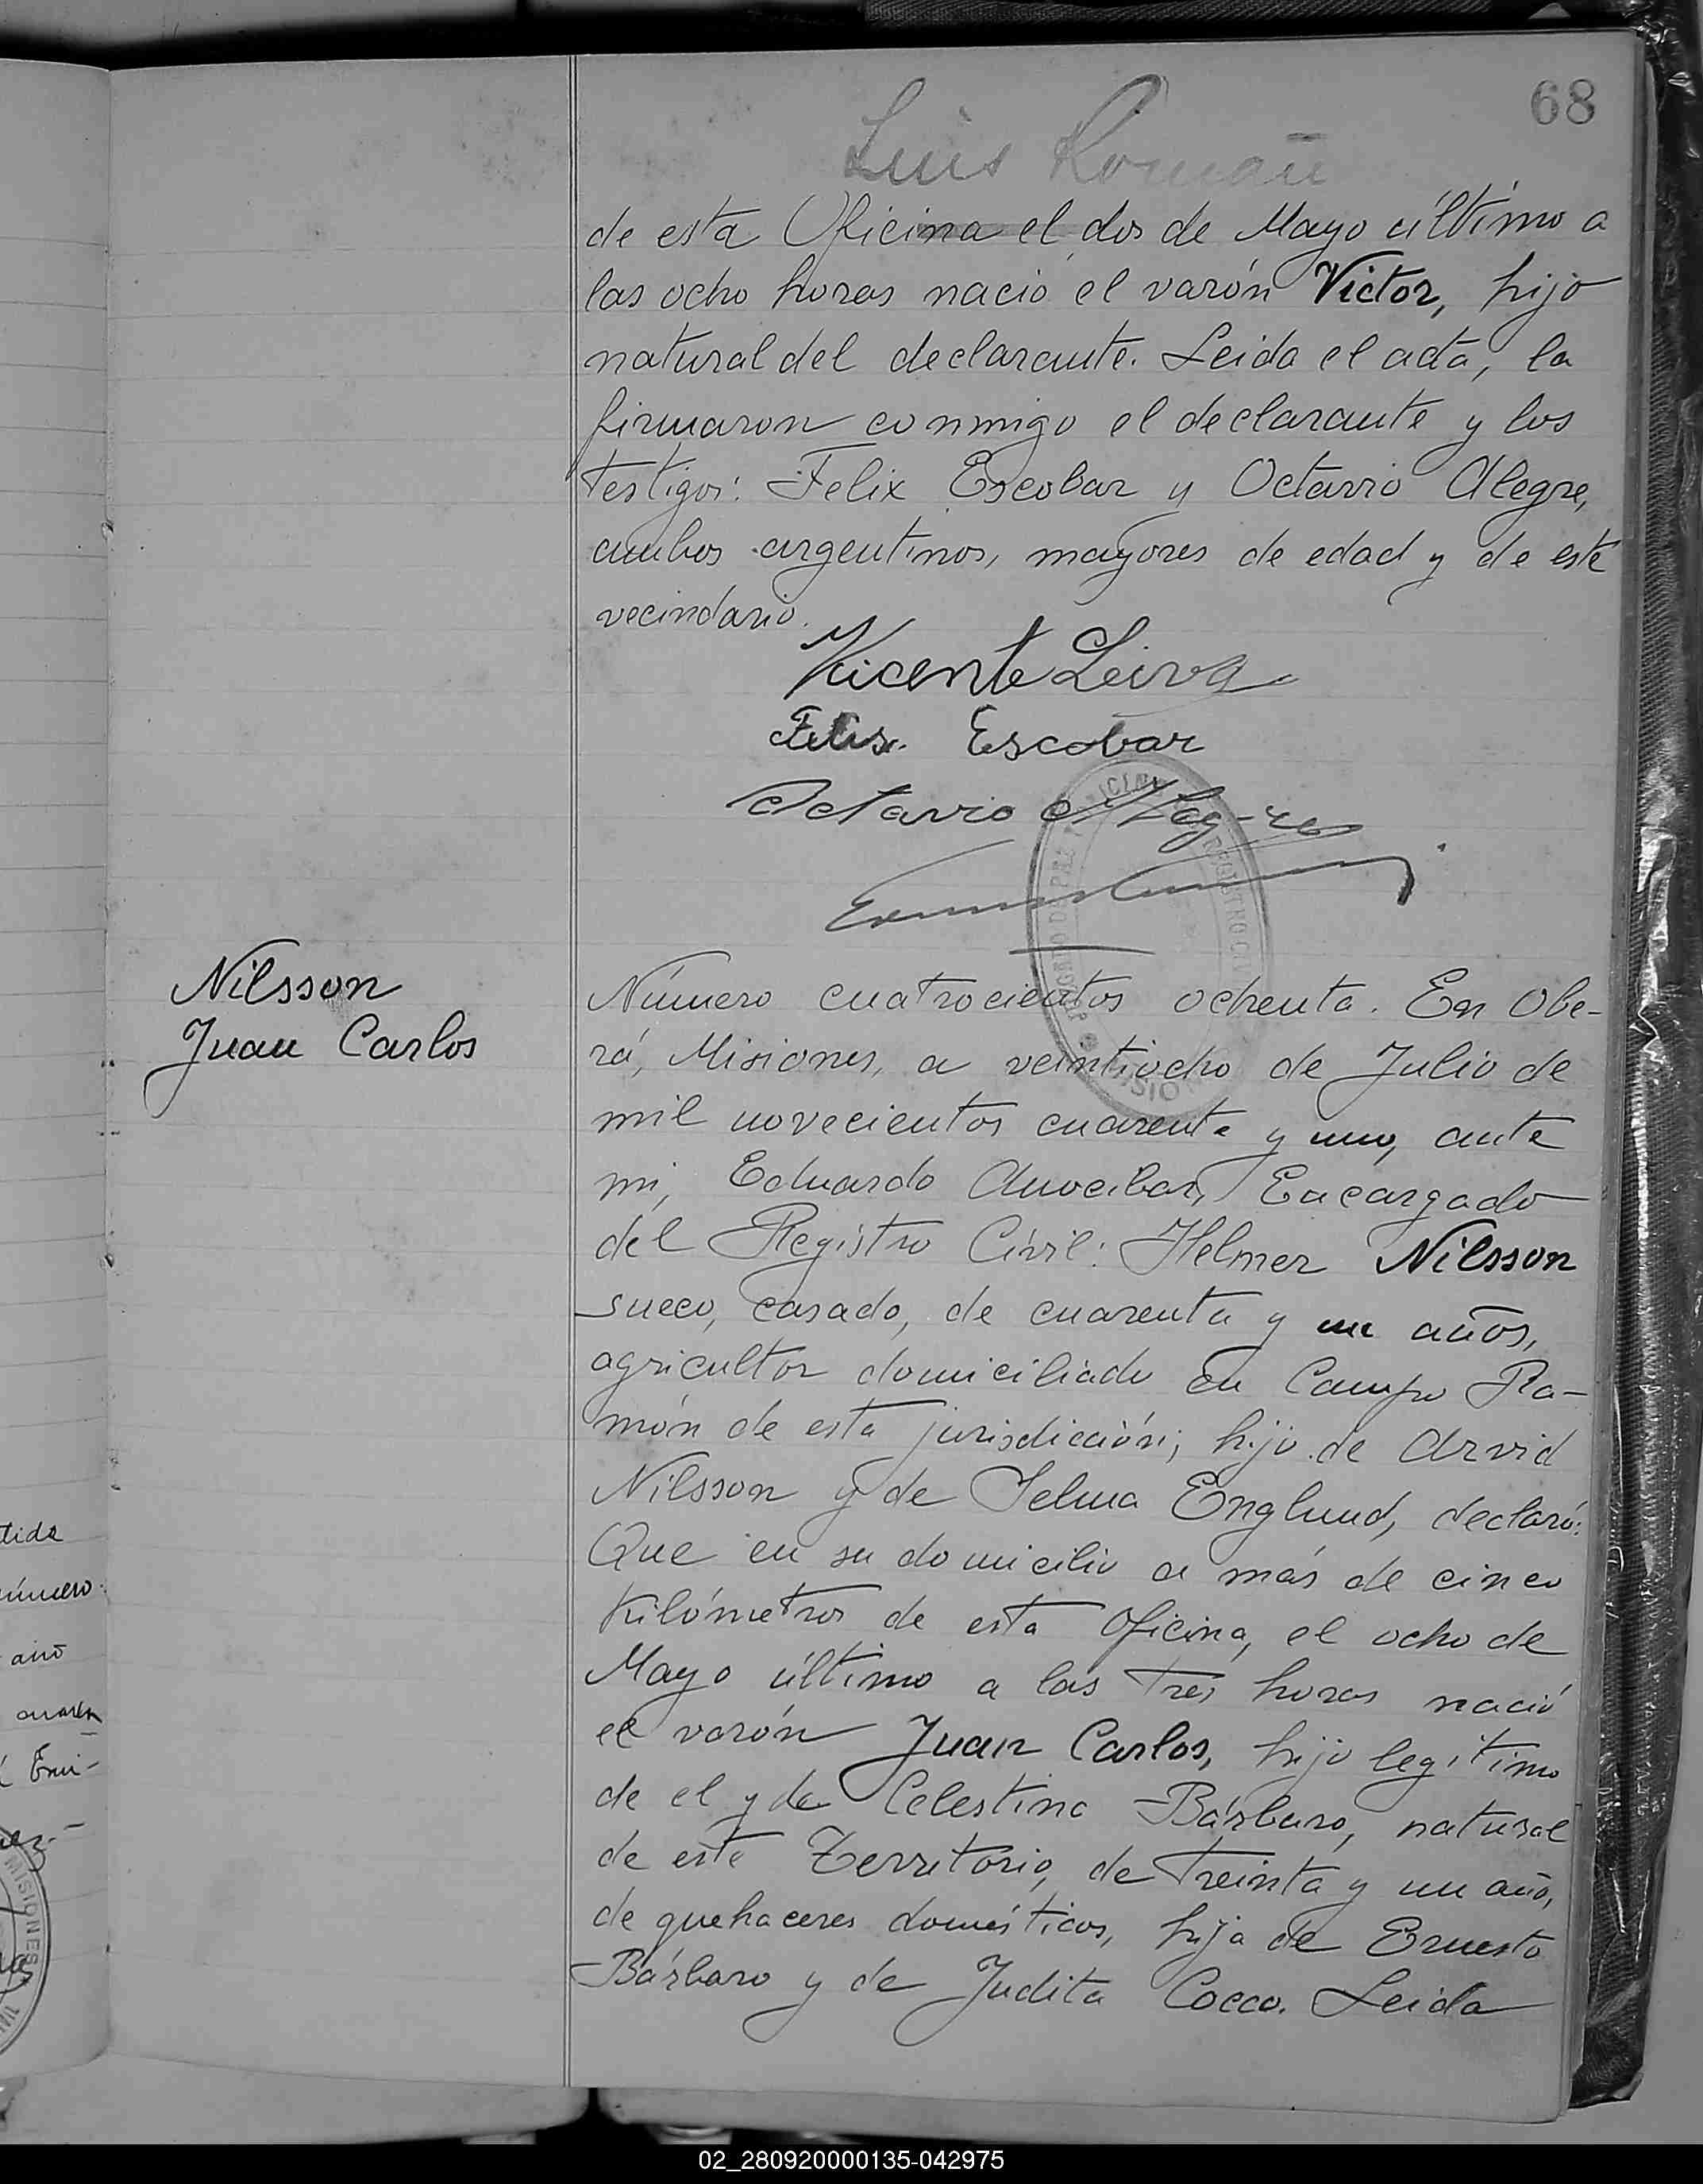 68
Luis Román
de esta Oficina el dos de Mayo último a
las ocho horas nació el varón Victor, hijo
natural del declarante. Leida el acta, la
firmaron conmigo el declarante y los
testigos: Felix Escobar y Octavio Alegre,
ambos argentinos, mayores de edad y de este
vecindario.
Vicente Leiva
Felis. Escobar
Octavio Alegre
REGISTRO CIVIL
Nilsson
Juan Carlos
Número cuatrocientos ochenta. En Obe-
rá, Misiones, a veintiocho de Julio de
mil novecientos cuarenta y uno, ante
mi, Eduardo Anocibar, Encargado
del Registro Civil: Helmer Nilsson
sueco, casado, de cuarenta y un años,
agricultor domiciliado en Campo Ra-
món de esta jurisdicción; hijo de Arvid
Nilsson y de Selma Englund, declaró:
Que en su domicilio a más de cinco
Kilómetros de esta Oficina, el ocho de
Mayo último a las tres horas nació
el varón Juan Carlos, hijo legitimo
de el y de Celestina Bárbaro, natural
de este Territorio, de treinta y un año,
de quehaceres domésticos, hija de Ernesto
Bárbaro y de Judita Cocco. Leida
tida
número
año
MISIONES
02_280920000135-042975